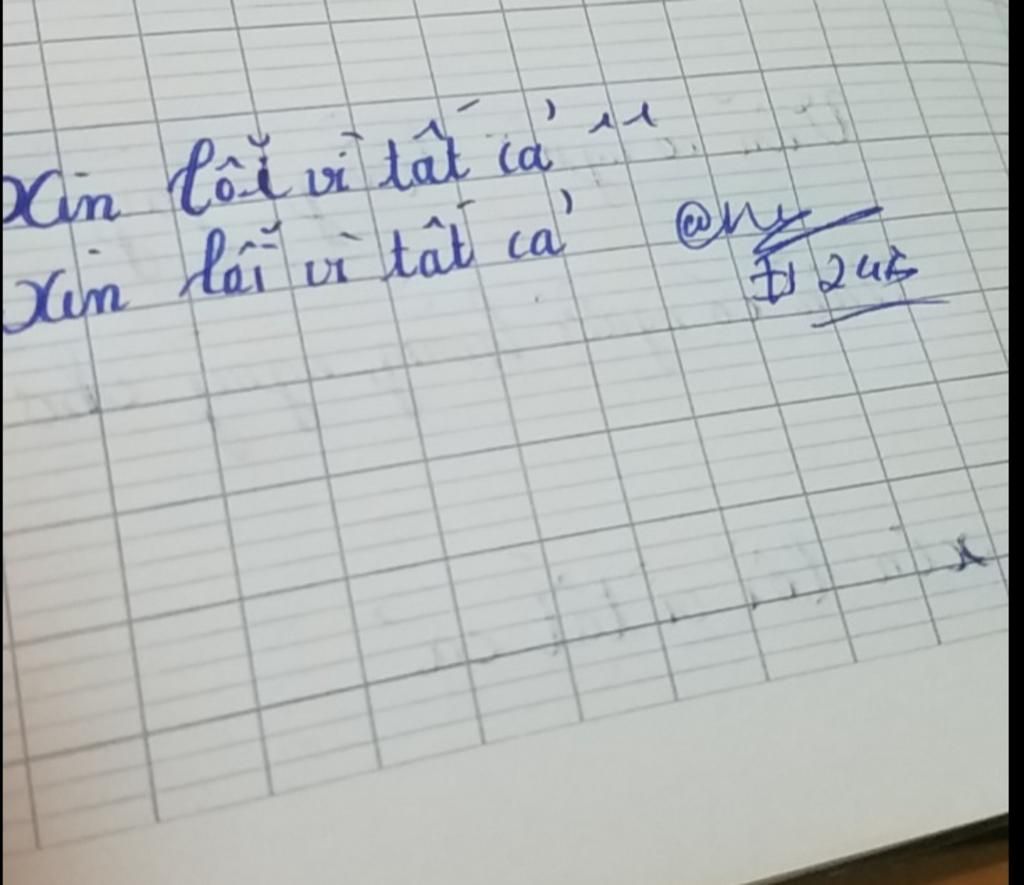 Xin lỗi vì tất cả
Xin lỗi vì tất cả